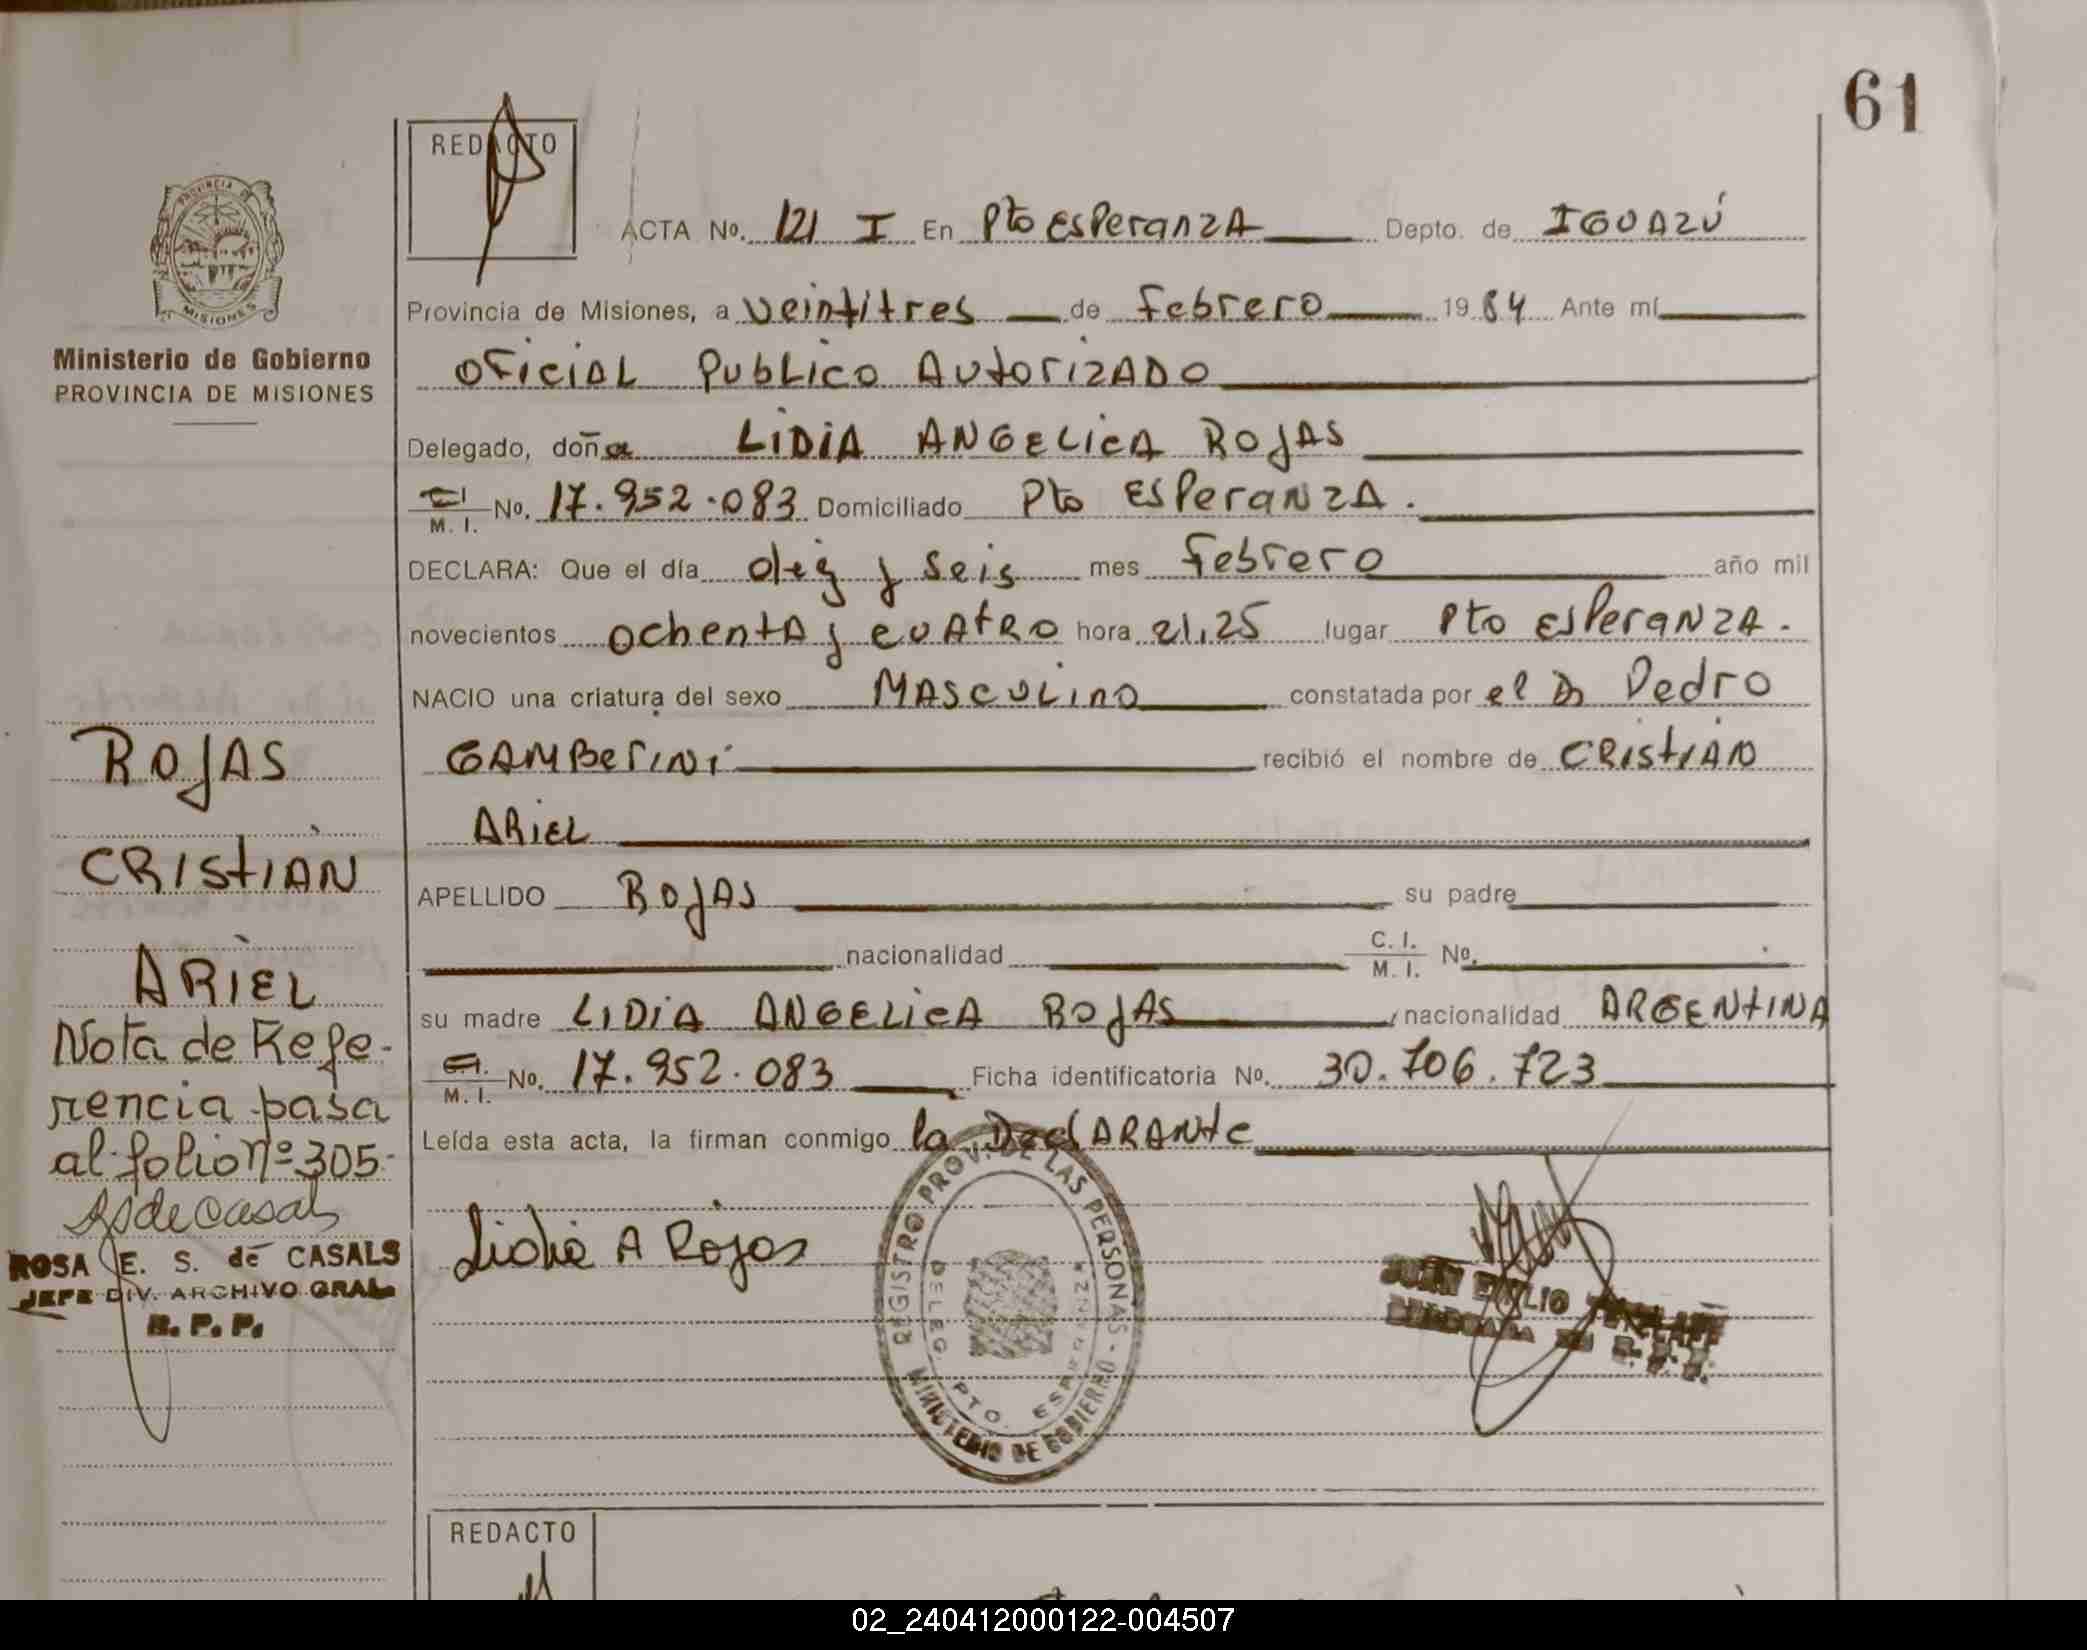 61
REDACTO
ACTA No. 121 I En Pto Esperanza Depto. de IGUAZÚ
Provincia de Misiones, a veintitres de febrero 1984 Ante mí
oficial Publico Autorizado
Delegado, doña LIDIA ANGELICA ROJAS
C.I. M. I. No. 17.952.083 Domiciliado Pto Esperanza.
DECLARA: Que el día diez y seis mes febrero año mil
novecientos ochenta y cuatro hora 21,25 lugar Pto Esperanza.
NACIO una criatura del sexo MASCULINO constatada por el Dr Pedro
GAMBERINI recibió el nombre de CRISTIAN
ARIEL
APELLIDO ROJAS su padre
nacionalidad C. I. M. I. No.
su madre LIDIA ANGELICA ROJAS, nacionalidad ARGENTINA
C.I. M. I. No. 17.952.083 Ficha identificatoria No. 30.706.723
Leída esta acta, la firman conmigo la Declarante
Lidia A Rojas
REGISTRO PROV. DE LAS PERSONAS - MINISTERIO DE GOBIERNO
DELEG. PTO. ESPERANZA
JUAN EMILIO
PROVINCIA DE MISIONES
Ministerio de Gobierno
PROVINCIA DE MISIONES
ROJAS
CRISTIAN
ARIEL
Nota de Refe-
rencia pasa
al folio nº 305-
RSdeCasals
ROSA E. S. de CASALS
JEFE DIV. ARCHIVO GRAL
R. P. P.
REDACTO
02_240412000122-004507